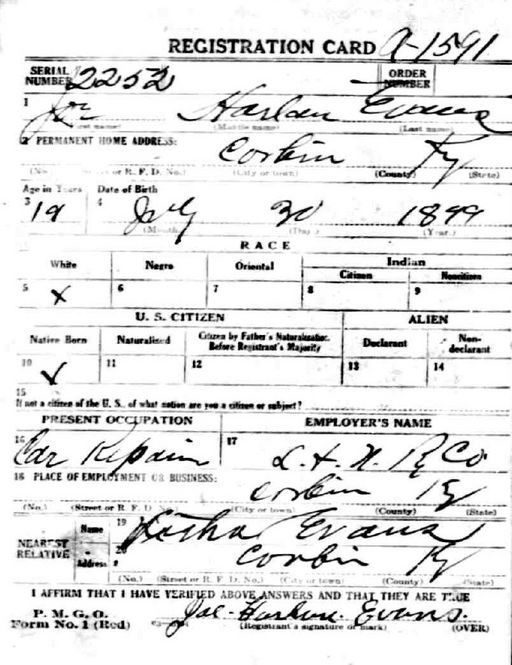 REGISTRATION CARD A-1591
SERIAL NUMBER 2252 ORDER NUMBER
1 Joe Harlan Evans
(First name) (Middle name) (Last name)
2 PERMANENT HOME ADDRESS:
Corbin Ky
(No.) or R. F. D. No.) (City or town) (County) (State)
Age in Years Date of Birth
3 19 4 July 30 1899
(Month) (Day) (Year)
RACE
White Negro Oriental Indian
Citizen Noncitizen
5 X 6 7 8 9
U. S. CITIZEN ALIEN
Native Born Naturalized Citizen by Father's Naturalization Before Registrant's Majority Declarant Non-declarant
10 ✓ 11 12 13 14
15
If not a citizen of the U. S., of what nation are you a citizen or subject?
PRESENT OCCUPATION EMPLOYER'S NAME
16 Car Repair 17 L. & N. R Co
18 PLACE OF EMPLOYMENT OR BUSINESS:
Corbin Ky
(No.) (Street or R. F. D. (City or town) (County) (State)
NEAREST RELATIVE Name 19 Evans
Address 20 Corbin Ky
(No.) (Street or R. F. D. No.) (City or town) (County) (State)
I AFFIRM THAT I HAVE VERIFIED ABOVE ANSWERS AND THAT THEY ARE TRUE
P. M. G. O.
Form No. 1 (Red) Joe Evans.
(Registrant's signature or mark) (OVER)